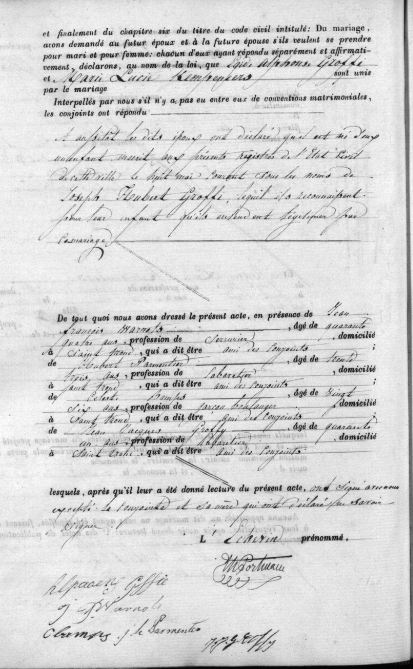 et finalement du chapitre six du titre du code civil intitulé: Du mariage,
avons demandé au futur époux et à la future épouse s'ils veulent se prendre
pour mari et pour femme: chacun d'eux ayant répondu séparément et affirmati-
vement, déclarons, au nom de la loi, que Louis Alphonse Groffe
et Marie Lucie sont unis
par le mariage
Interpellés par nous s'il n'y a pas eu entre eux de conventions matrimoniales,
les conjoints ont répondu
Aussitôt les dits époux ont déclaré qu'il est né d'eux
un enfant inscrit aux présents registres de l'Etat Civil
de cette ville le huit mai courant sous les noms de
Joseph Hubert Groffe, lequel ils reconnaissent
pour leur enfant qu'ils entendent légitimer par
ce mariage
De tout quoi nous avons dressé le présent acte, en présence de Jean
François Warnots, âgé de quarante
quatre ans, profession de Serrurier, domicilié
à Saint Trond, qui a dit être ami des conjoints;
de Hubert Parmentier, âgé de trente
trois ans, profession de Cabaretier, domicilié
à Saint Trond, qui a dit être ami des conjoints;
de Celestin, âgé de vingt
six ans, profession de garçon boulanger, domicilié
à Saint Trond, qui a dit être ami des conjoints;
de Jean Jacques Groffy, âgé de quarante
un ans, profession de Cabaretier, domicilié
à Saint Trond, qui a dit être ami des conjoints
lesquels, après qu'il leur a été donné lecture du présent acte, ont signé avec nous
excepté la conjointe et sa mère qui ont déclaré ne savoir
signer
L'Echevin prénommé.